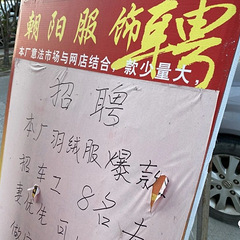 朝阳服饰聘
本厂意法市场与网店结合，款少量大，
招聘
本厂羽绒服爆款
招车工8名
妻优先可
做